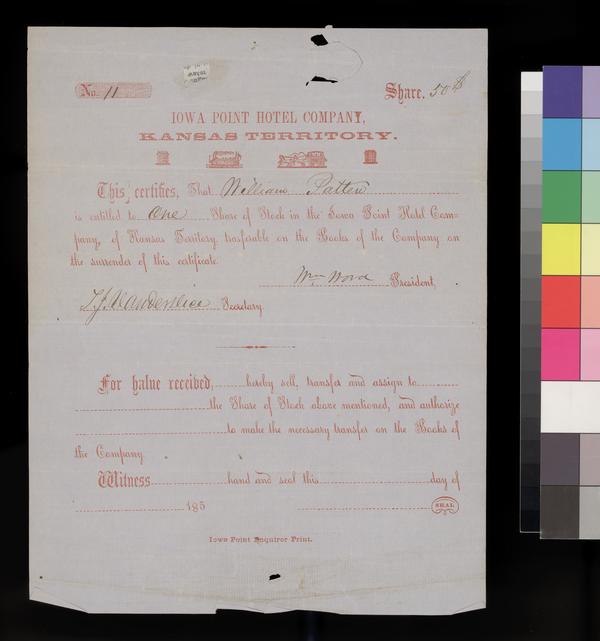 No. 11 Share. 50 $
IOWA POINT HOTEL COMPANY,
KANSAS TERRITORY.
This certifies, That William Patten
is entitled to One Share of Stock in the Iowa Point Hotel Com=
pany, of Kansas Territory, trasferable on the Books of the Company on
the surrender of this certificate.
Wm Word President,
T. J. Vanderslice Secretary.
For balue received, hereby sell, transfer and assign to
the Share of Stock above mentioned, and authorize
to make the necessary transfer on the Books of
the Company.
Witness hand and seal this day of
185 SEAL
Iowa Point Enquirer Print.